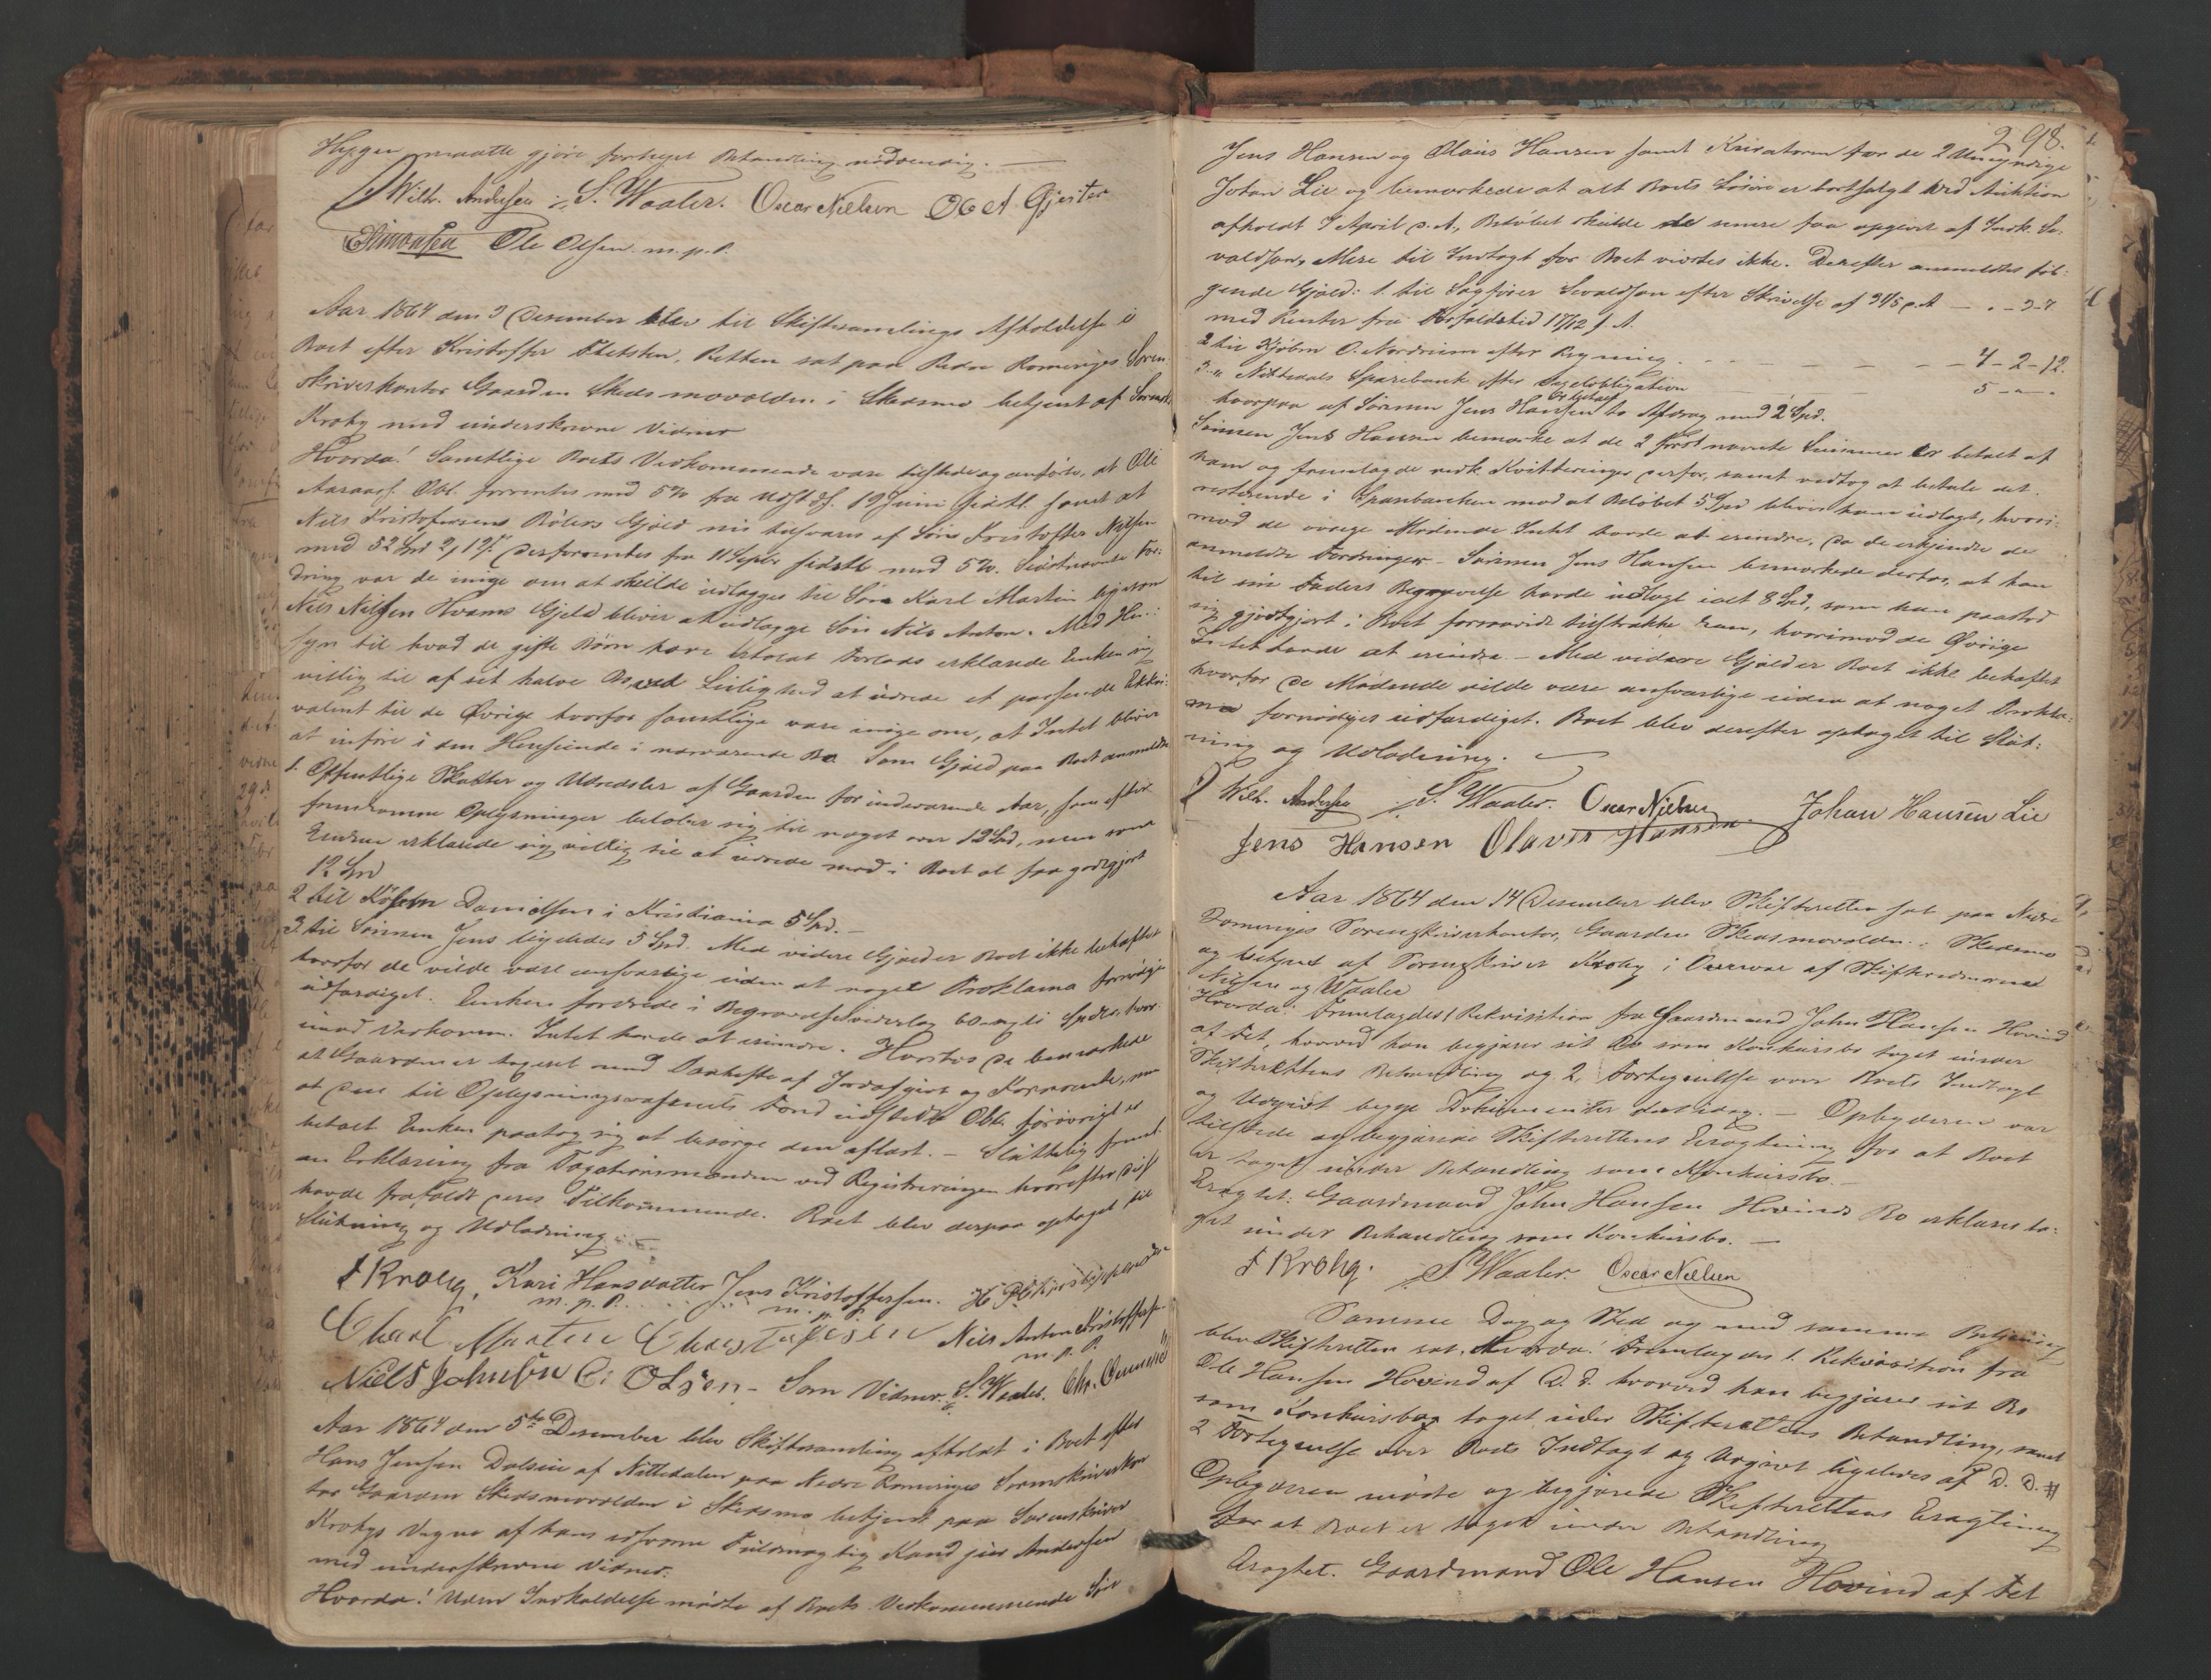 Hygen maatte gjøre fortsat Behandling nødvendig. —
Wilh. Andersen S. Waaler. Oscar Nielsen Ole A. Gjester
ESimonsen Ole Olsen m.p.P.
Aar 1864 den 3 December blev til Skiftesamlings Afholdelse i
Boet efter Kristoffer Retten sat paa Nedre Romeriges Soren-
skriverkontor Gaarden Skedsmovolden i Skedsmo betjent af Sorenskr.
Krohg med underskrevne Vidner
Hvorda! Samtlige Boets Vedkommende vare tilstede og anførte, at Ole
Aaraas's Obl. forrentes med 5% fra 19 Juni sidstl. samt at
Nils Kristofersens Gjæld nu tilsvares af Søn Kristoffer Nilsen
med 52 Spd 2, 12 der forrentes fra 11 Septbr sidstl. med 5%. Sidstnævnte For-
dring var de enige om at skulde udlægges til Søn Karl Martin ligesom
Nils Nilsen Hvams Gjeld bliver at udlægge Søn Nils Anton. Med Hen-
syn til hvad de gifte Børn have erholdt Forlods erklærede Enken sig
villig til af sit halve Bo ved Leilighed at udrede et passende Ekkvi-
valent til de Øvrige hvorfor samtlige vare enige om, at Intet bliver
at inføre i den Henseende i nærværende Bo. Som Gjæld paa Boet anmeldtes
1. Offentlige Skatter og Udredsler af Gaarden for indeværende Aar, som efter
fremkomne Oplysninger beløber sig til noget over 12 Spd, men som
Enken erklærede sig villig til at udrede mod i Boet at faa godtgjort
12 Spd
2 til Kjøbm Danielsen i Kristiania 5 Spd. —
3 til Sønnen Jens ligeledes 5 Spd. Med videre Gjæld er Boet ikke behæftet
hvorfor de vilde være ansvarlige uden at noget Proklama fornødiges
udfærdiget. Enken fordrede i Begravelsesvederlag 60 Spdlr, hvor-
imod Vedkomm. Intet havde at erindre. Hvorhos de bemærkede
at Gaarden er hæftet med Panhefte af Jordafgivt og Kornrente, men
at den til Oplysningsvæsenets Fond udstedte Obl. forøvrigt er
betalt Enken paatog sig at besørge den aflæst. — Sluttelig freml.
en Erklæring fra Taxationsmændene ved Registreringen hvorefter disse
havde frafaldt deres Tilkommende. Boet blev derpaa optaget til
Slutning og Udlodning.
F Krohg, Kari Hansdatter Jens Kristoffersen.
m.p.P. m.p.P.
Charl Marten Christofersen Nils Anton Kristoffersen
m.p.P.
Niels Johnsen C: Olsen — Som Vidner: S. Waaler. Chr.
Aar 1864 den 5te December blev Skiftesamling afholdt i Boet efter
Hans Jensen Dalsiie af Nittedalen paa Nedre Romeriges Sorenskriverkon-
tor Gaarden Skedsmovolden i Skedsmo betjent paa Sorenskriver
Krohgs Vegne af hans edsvorne Fuldmægtig Kand jur Andersen
med underskrevne Vidner.
Hvorda! Uden Indkaldelse mødte af Boets Vedkommende Søn
298.
Jens Hansen og Olaus Hansen samt Kurator for de 2 Umyndige
Johan Lie og bemærkede at alt Boets Løsøre er bortsolgt ved Auktion
afholdt 7 April d. A., Beløbet skulde de senere faa opgivet af Sagf. Se-
valdsen. Mere til Indtægt for Boet vidstes ikke. Derefter anmeldtes føl-
gende Gjæld: 1. til Sagfører Sevaldsen efter Skrivelse af 31/5 d. A — " - 3 - 4
med Renter fra Forfaldstid 17/12 f. A.
2 til Kjøbm O. Nordrum efter Regning — 4 - 2 - 12.
3 " Nittedals Sparebank efter Gjeldsobligation — 5 - " - "
hvorpaa af Sønnen Jens Hansen er betalt to Afdrag med 2 Spd.
Sønnen Jens Hansen bemærke at de 2 først nævnte Summer er betalt af
ham og fremlagde vedk. Kvitteringer derfor, samt vedtog at betale det
resterende i Sparebanken mod at Beløbet 5 Spd bliver ham udlagt, hvori-
mod de øvrige Mødende Intet havde at erindre, da de erkjendte de
anmeldte Fordringer — Sønnen Jens Hansen bemærkede derhos, at han
til sin Faders Begravelse havde udlagt ialt 8 Spd, som han paastod
sig godtgjort i Boet forsaavidt tilstrække kan, hvorimod de Øvrige
Intet havde at erindre — Med videre Gjæld er Boet ikke behæftet
hvorfor de Mødende vilde være ansvarlige uden at noget Prokla-
ma fornødiges udfærdiget. Boet blev derefter optaget til Slut-
ning og Udlodning.
Wilh. Andersen S. Waaler. Oscar Nielsen Johan Hansen Lie
Jens Hansen Olavs Hansen
Aar 1864 den 14 December blev Skifteretten sat paa Nedre
Romeriges Sorenskriverkontor, Gaarden Skedsmovolden i Skedsmo
og betjent af Sorenskriver Krohg i Overvær af Skiftevidnerne
Nielsen og Waaler
Hvorda: Fremlagdes 1 Rekvisition fra Gaardmand John Hansen Hovind
af Fet, hvorved han begjærer sit Bo som Konkursbo taget under
Skifterettens Behandling og 2, Fortegnelse over Boets Indtægt
og Udgivt begge Dokumenter dat. idag. — Opbyderen var
tilstede og begjærede Skifterettens Eragtning for at Boet
er taget under Behandling som Konkursbo. —
Eragtet: Gaardmand John Hansen Hovinds Bo erklæres ta-
get under Behandling som Konkursbo. —
F Krohg. S. Waaler. Oscar Nielsen
Samme Dag og Sted og med samme Betjening
blev Skifteretten sat. Hvorda! Fremlagdes 1. Rekvisition fra
Ole Hansen Hovind af D. D. hvorved han begjærer sit Bo
som Konkursbo taget under Skifterettens Behandling, samt
2 Fortegnelse over Boets Indtægt og Udgivt ligeledes af D. D.
Opbyderen mødte og begjærede Skifterettens Eragtning
for at Boet er taget under Behandling
Eragtet. Gaardmand Ole Hansen Hovind af Fet